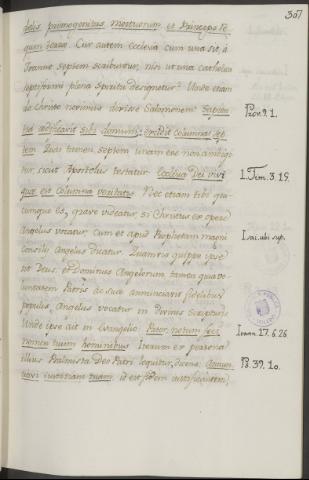 307
delis primogenitus mortuorum et Princeps Re
gum terrae. Cur autem ecclesia cum una sit, a
Joanne septem scribuntur, nisi ut una catholica
septiformi plena Spiritu designetur? Unde etiam
de Christo novimus dixisse Salomonem: Sapien
tia aedificavit sibi domum, et excidit columnas sep
tem
Prov. 9. 1.
septem unam esse non ambigi
tur, sicut Apostolus testatur: Ecclesia Dei vivi
quae est columna veritatis. Nec etiam tibi qui
cumque es, grave videatur, si Christus ex opere
Angelus vocatur, cum et apud Prophetam magni
consilii Angelus dicatur. Quamvis quippe ipse
sit Deus, et Dominus Angelorum, tamen quia vo
luntatem Patris de suae annunciavit fidelibus
populis, Angelus vocatur in divinis Scripturis
Unde ipse ait in Evangelio: Pater, notum feci
nomen tuum hominibus. Iterum ex persona
illius Psalmista Deo Patri loquitur, dicens: Annun
tiavi iustitiam tuam, id est fidem iustificantem,
I. Tim. 3. 15.
Isai. ubi sup.
Ioann. 17. 6. 26
Ps. 39. 10.